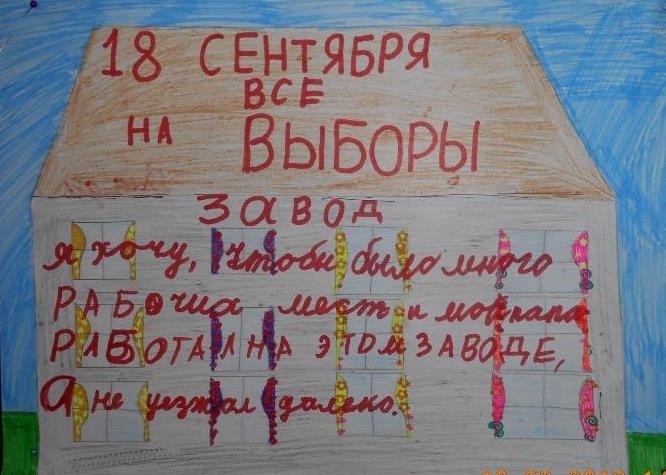 18 СЕНТЯБРЯ
ВСЕ
НА ВЫБОРЫ
ЗАВОД
я хочу, чтобы было много
РАБОЧИХ мест и мой папа
РАБОТАЛ НА ЭТОМ ЗАВОДЕ,
А не уезжал далеко.